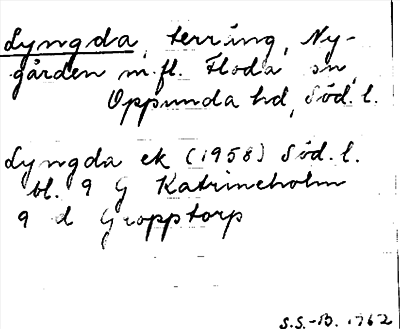 Lyngda, terräng, Ny-
gården m.fl. Floda sn,
Oppunda hd, Söd. l.
Lyngda ek (1958) Söd. l.
bl. 9 G Katrineholm
9 d Gropptorp
S.S.-B. 1762